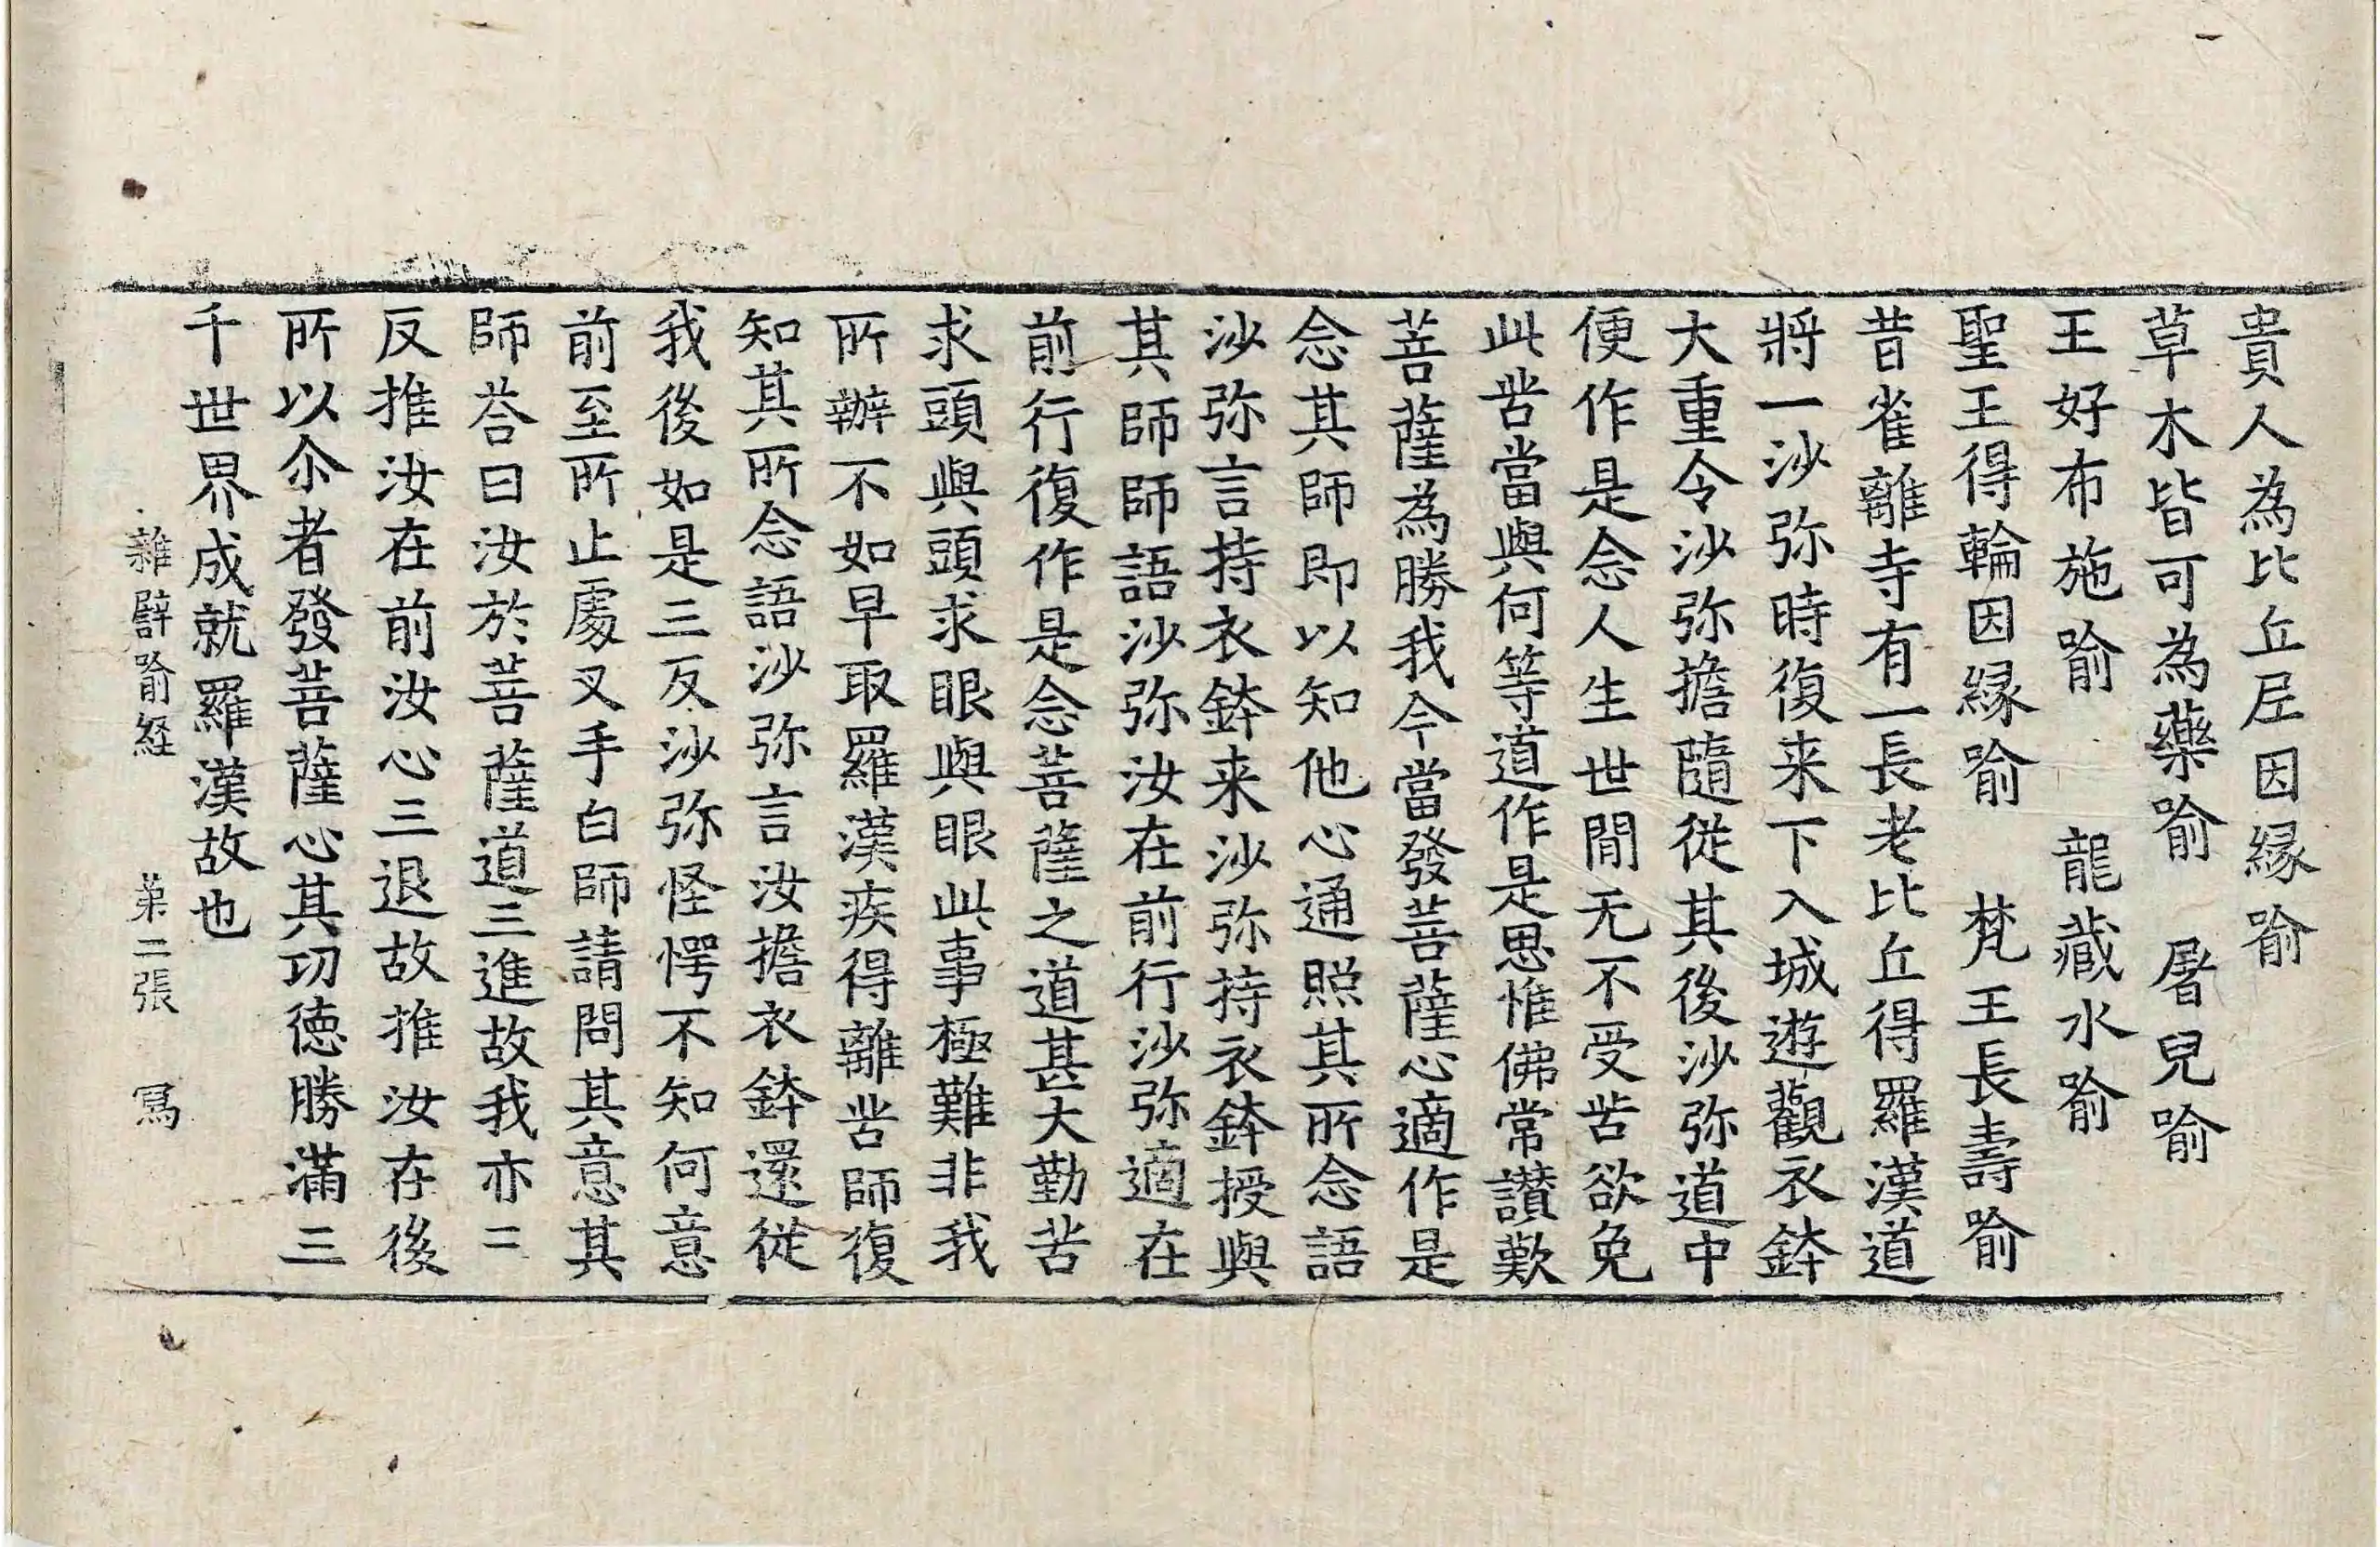 貴人為比丘尼因縁喻
草木皆可為藥喻　屠兒喻
王好布施喻　龍藏水喻
聖王得輪因縁喻　梵王長壽喻
昔雀離寺有一長老比丘得羅漢道
將一沙弥時復来下入城遊觀衣鉢
大重令沙弥擔隨従其後沙弥道中
便作是念人生世間无不受苦欲免
此苦當與何等道作是思惟佛常讃歎
菩薩為勝我今當發菩薩心適作是
念其師即以知他心通照其所念語
沙弥言持衣鉢来沙弥持衣鉢授與
其師師語沙弥汝在前行沙弥適在
前行復作是念菩薩之道甚大勤苦
求頭與頭求眼與眼此事極難非我
所辦不如早取羅漢疾得離苦師復
知其所念語沙弥言汝擔衣鉢還従
我後如是三反沙弥怪愕不知何意
前至所止處叉手白師請問其意其
師荅曰汝於菩薩道三進故我亦三
反推汝在前汝心三退故推汝在後
所以尒者發菩薩心其功德勝滿三
千世界成就羅漢故也
雜譬喻経　弟二張　寫